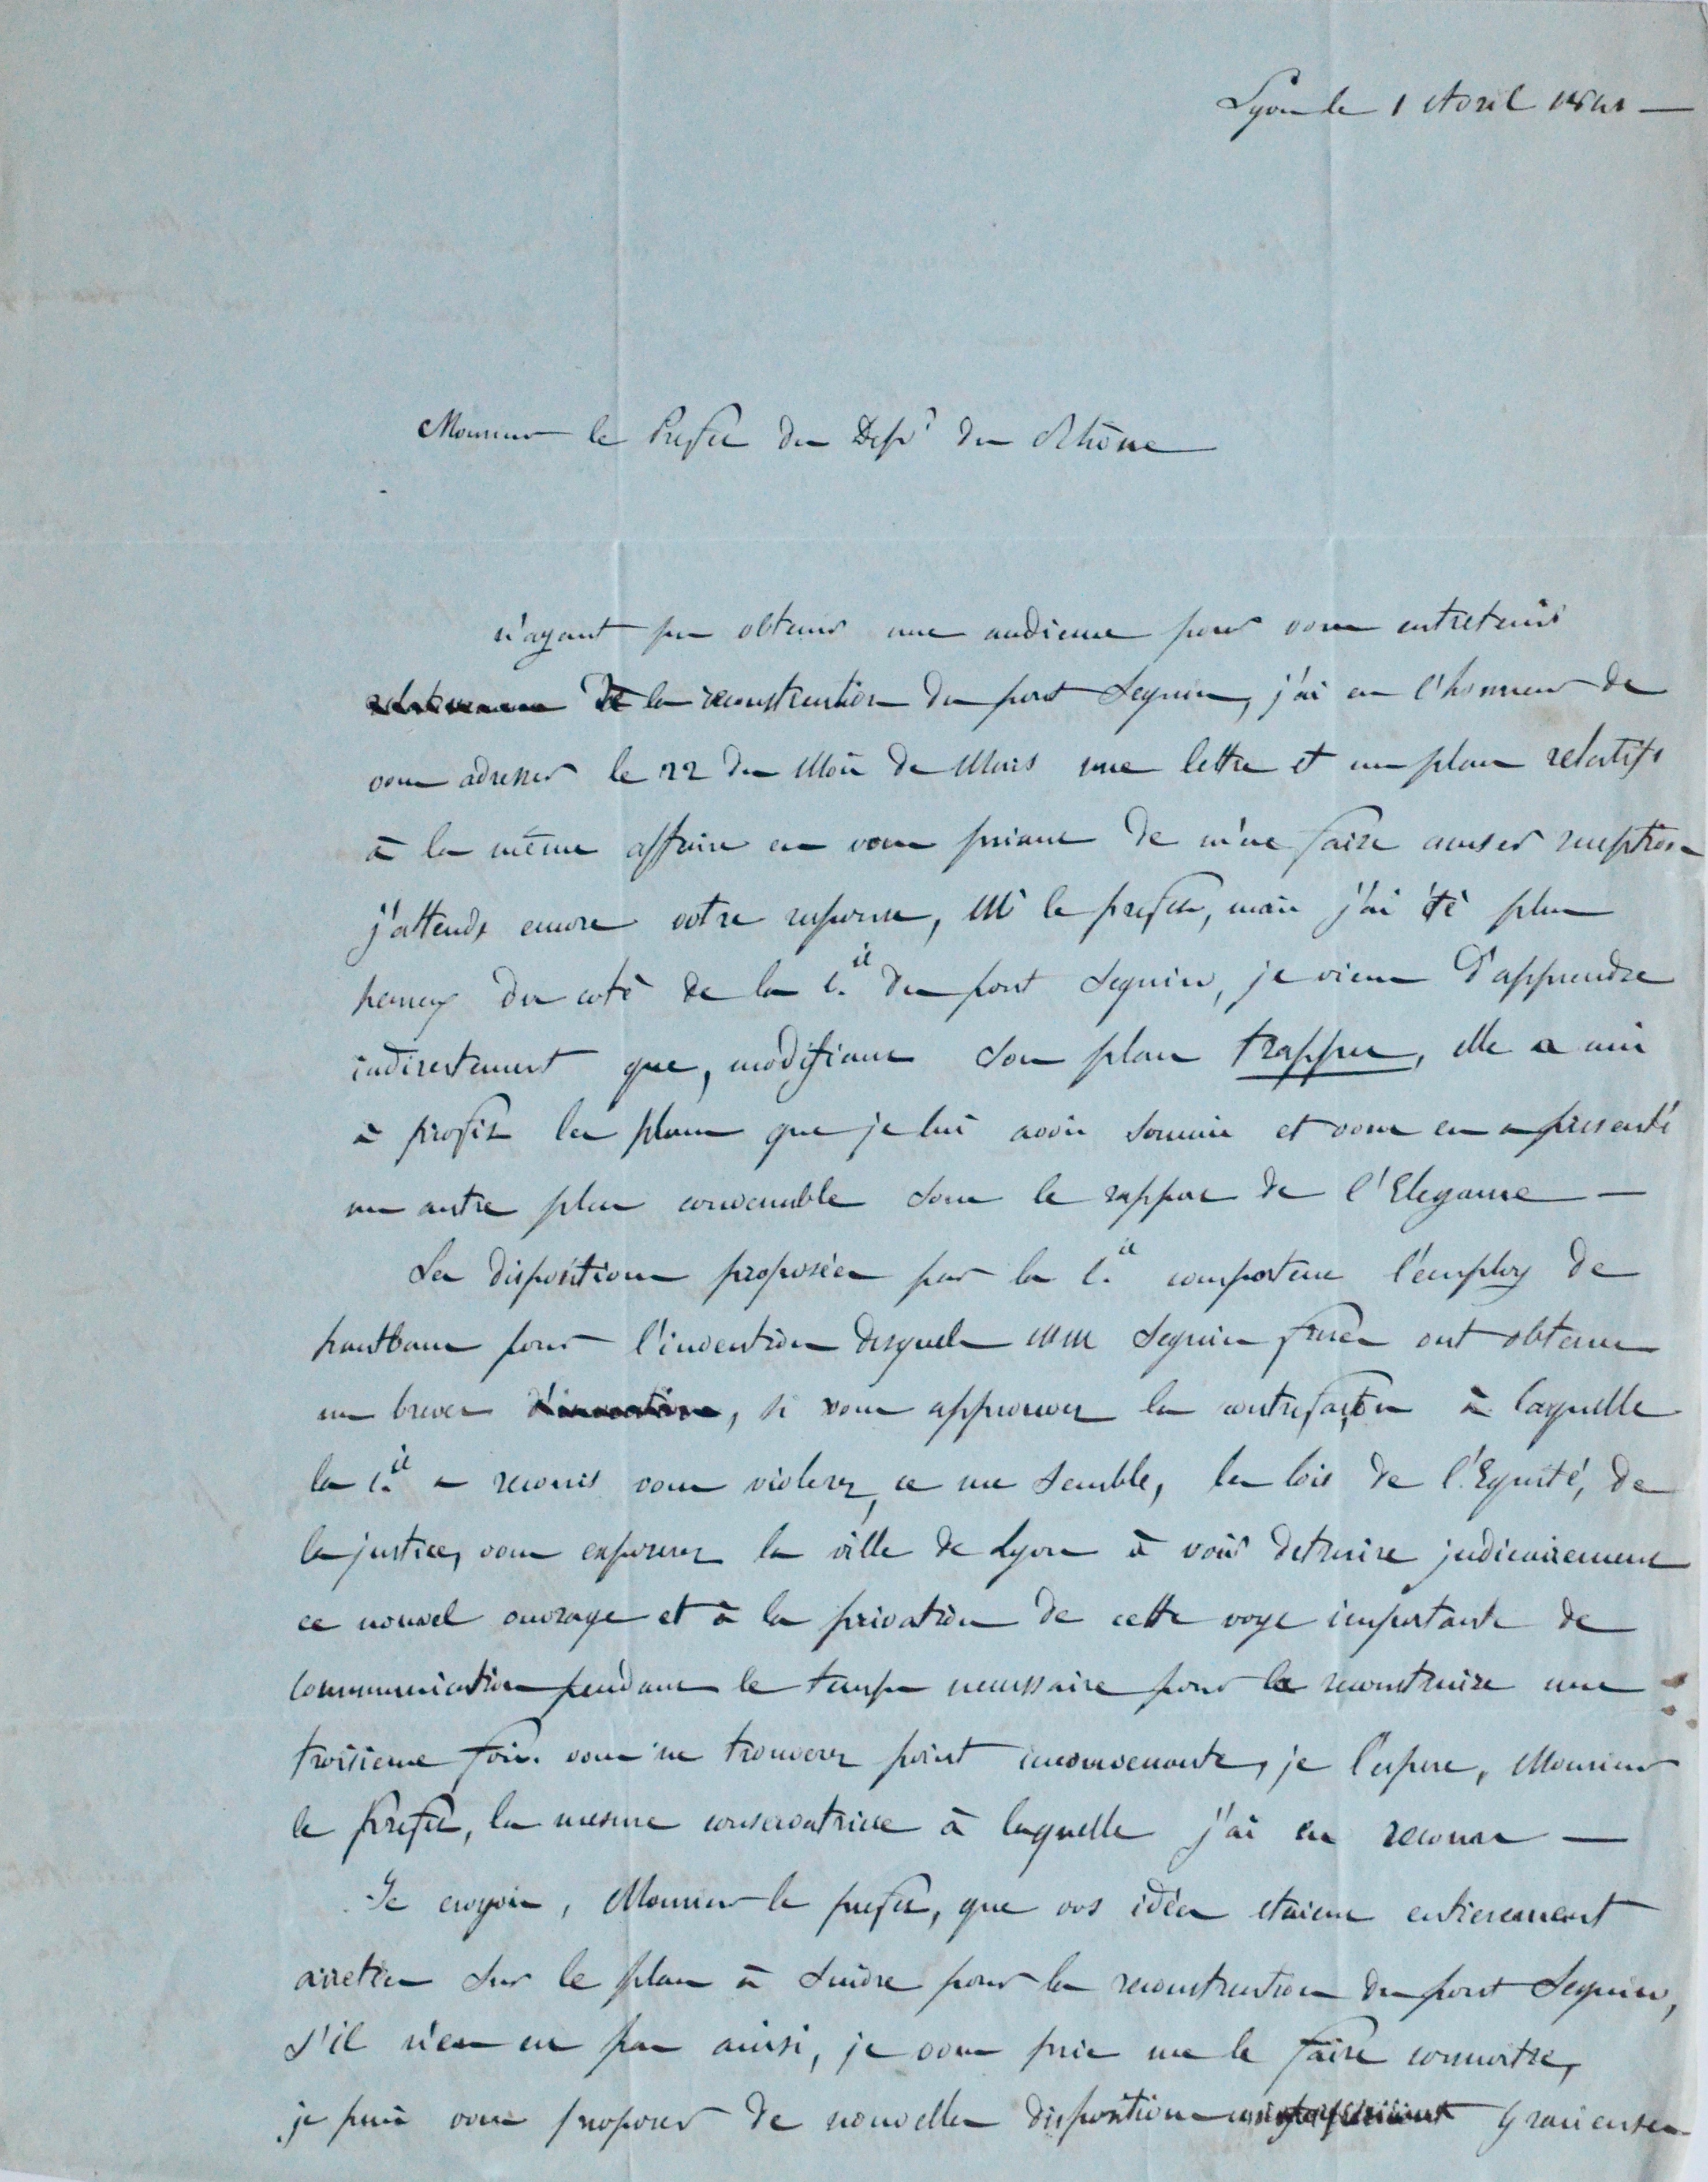 Lyon le 1 Avril 1841 —
Monsieur le Prefet du Dept du Rhône
n'ayant pu obtenir une audience pour vous entretenir
de la reconstruction du pont Seguin, j'ai eu l'honneur de
vous adresser le 22 du Mois de Mars une lettre et un plan relatifs
à la même affaire en vous priant de m'en faire accuser reception
j'attends encore votre reponse, Mr le prefet, mais j'ai été plus
heureux du coté de la Cie du pont Seguin, je viens d'apprendre
indirectement que, modifiant son plan trappu, elle a mis
à profit les plans que je lui avois soumis et vous en a présenté
un autre plus convenable sous le rapport de l'Elegance —
Les dispositions proposées par la Cie comportent l'employ de
hautbans pour l'invention desquels MM Seguin frères ont obtenu
un brevet d'invention, si vous approuvez la contrefaçon à laquelle
la Cie a recouris vous violerez, ce me semble, les lois de l'Equité, de
la justice, vous exposerez la ville de Lyon à voir detruire judicairement
ce nouvel ouvrage et à la privation de cette voye importante de
communication pendant le temps necessaire pour la reconstruire une
troisieme fois. vous ne trouverez point inconvenante, je l'espere, Monsieur
le Prefet, la mesure conservatrice à laquelle j'ai eu recours —
Je croyois, Monsieur le prefet, que vos idées etaient entierement
arretées sur le plan à suivre pour la reconstruction du pont Seguin,
s'il n'en est pas ainsi, je vous prie me le faire connoitre,
je puis vous proposer de nouvelles dispositions gracieuses